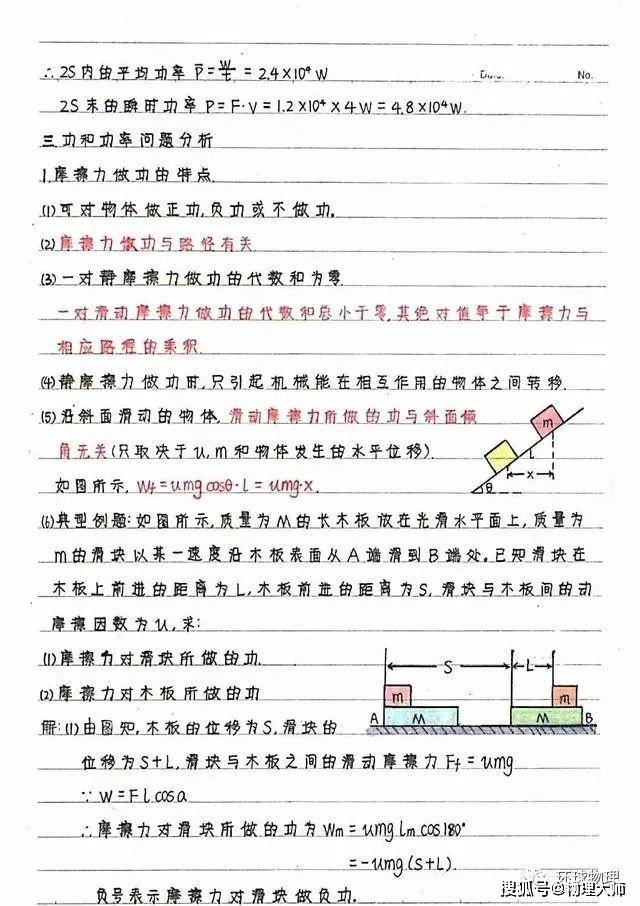 ∴ 2S内的平均功率 P̄=W/t = 2.4×10⁴W
No.
2S末的瞬时功率 P=F·V=1.2×10⁴×4W=4.8×10⁴W.
三.功和功率问题分析
1.摩擦力做功的特点.
(1)可对物体做正功,负功或不做功.
(2)摩擦力做功与路径有关
(3)一对静摩擦力做功的代数和为零.
一对滑动摩擦力做功的代数和总小于零,其绝对值等于摩擦力与
相应路程的乘积.
(4)静摩擦力做功时,只引起机械能在相互作用的物体之间转移.
(5)沿斜面滑动的物体,滑动摩擦力所做的功与斜面倾
角无关(只取决于u,m和物体发生的水平位移).
如图所示, Wf=umgcosθ·l=umg·x.
m
L
x
θ
(6)典型例题:如图所示,质量为M的长木板放在光滑水平面上,质量为
m的滑块以某一速度沿木板表面从A端滑到B端处.已知滑块在
木板上前进的距离为L,木板前进的距离为S,滑块与木板间的动
摩擦因数为u,求:
(1)摩擦力对滑块所做的功.
(2)摩擦力对木板所做的功
S
L
m
m
A
M
M
B
解:(1)由图知,木板的位移为S,滑块的
位移为S+L,滑块与木板之间的滑动摩擦力Ff=umg
∵ W=Flcosa
∴摩擦力对滑块所做的功为Wm=umglmcos180°
=-umg(S+L).
负号表示摩擦力对滑块做负功.
环球物理
搜狐号@物理大师